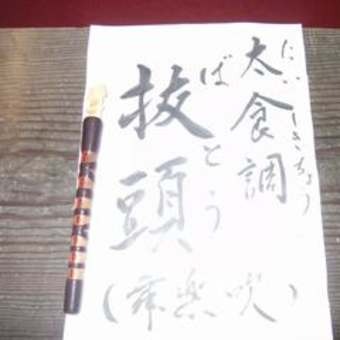 太食調
たいしきちょう
抜頭
ばとう
(舞楽吹)